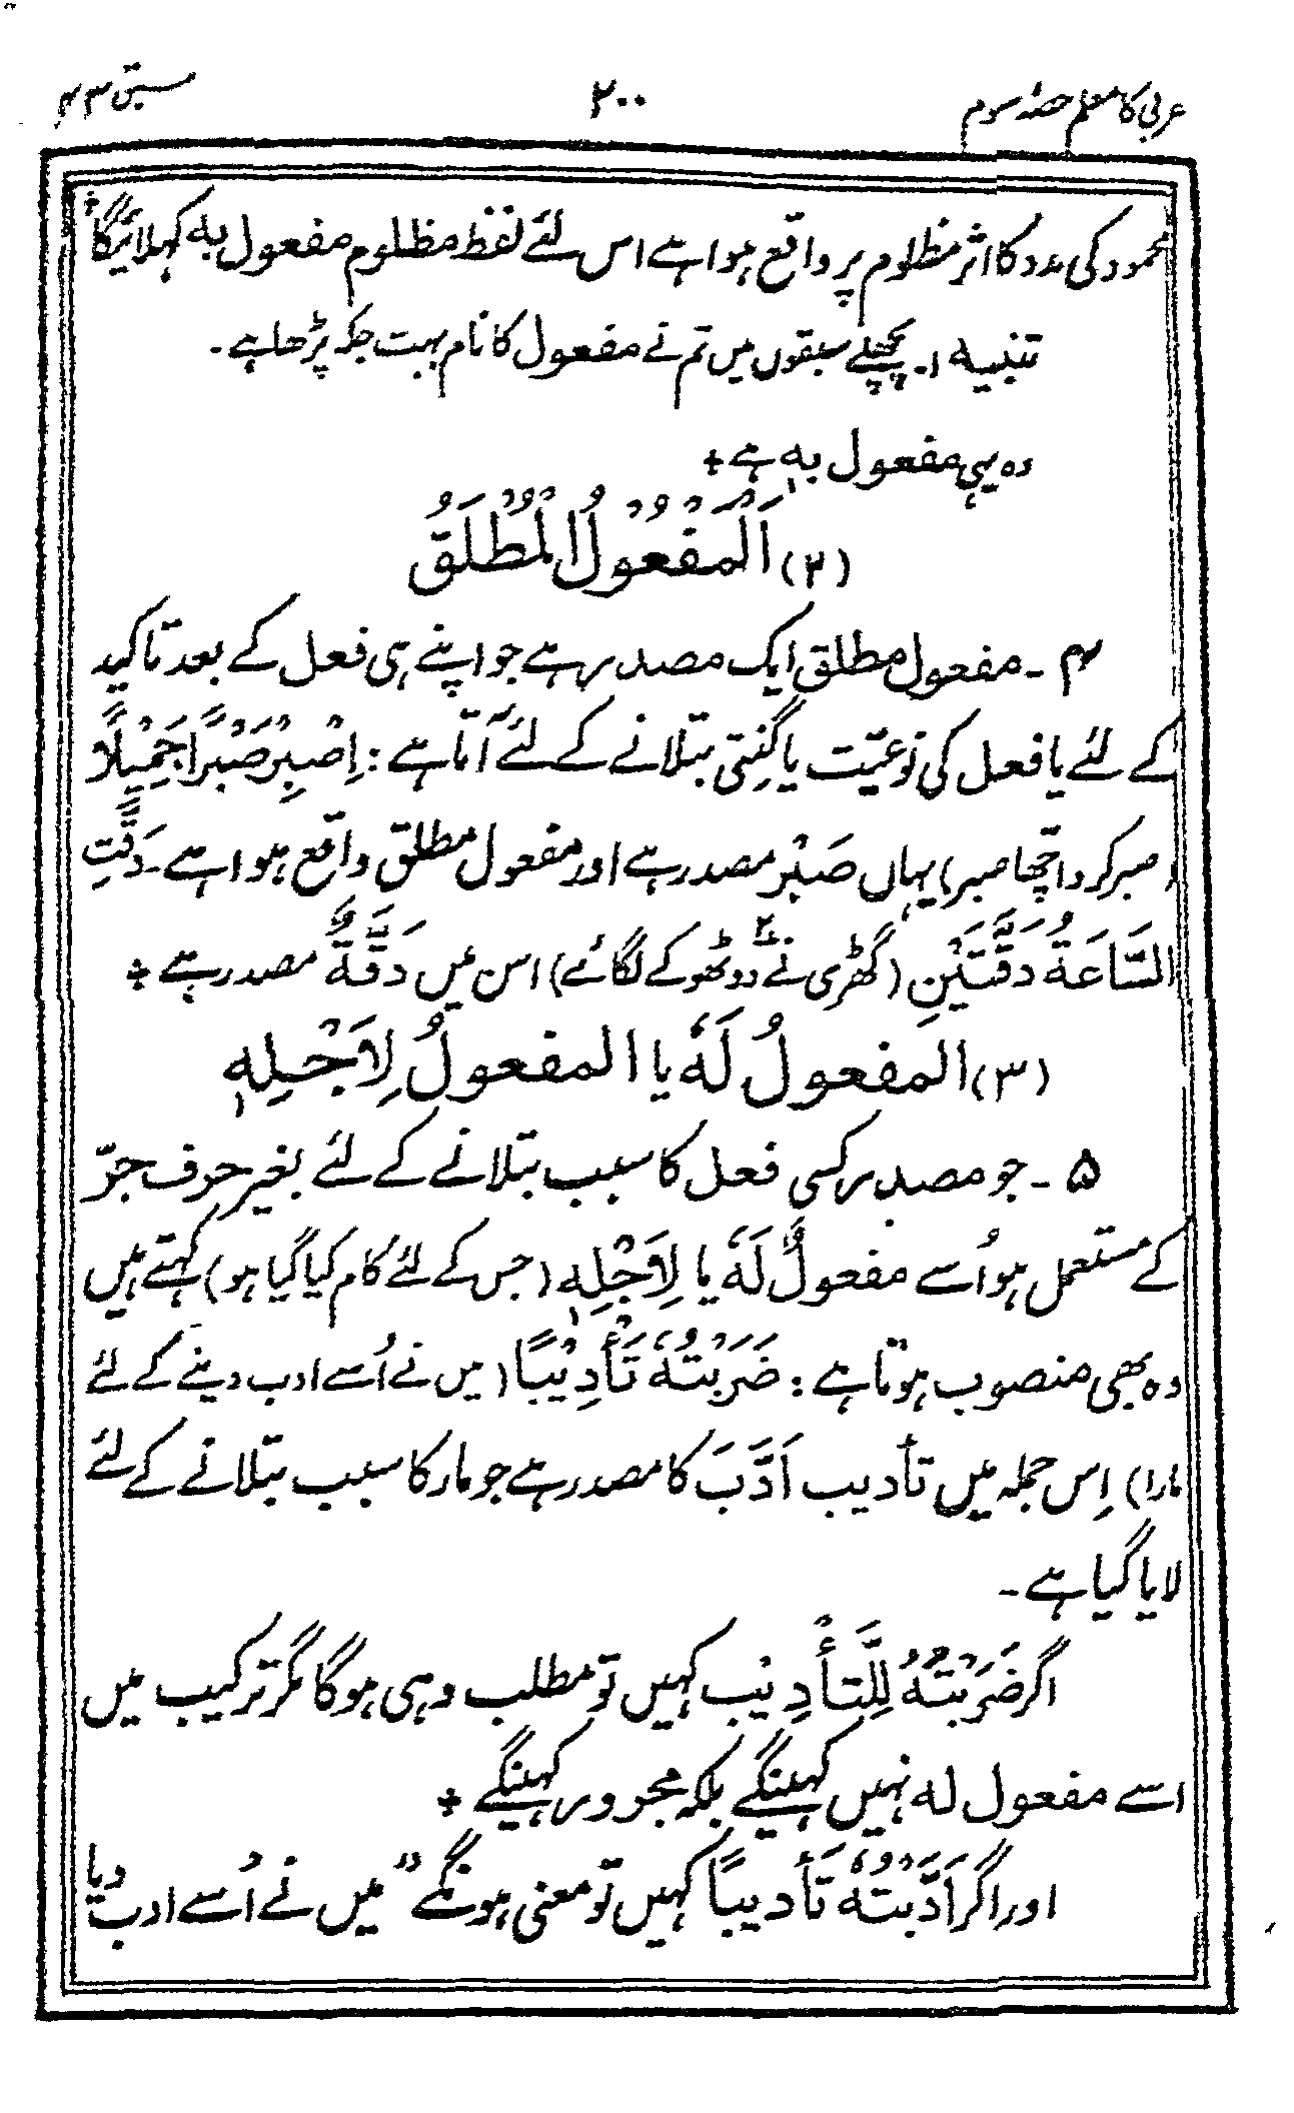 عربی کا معلم حصۂ سوم ۲۰۰ سبق ۴۳
محمود کی مدد کا اثر مظلوم پر واقع ہوا ہے اس لئے لفظ مظلوم مفعول بہ کہلائیگا ÷
تنبیہ ۱۔ پچھلے سبقوں میں تم نے مفعول کا نام بہت جگہ پڑھا ہے۔
وہ یہی مفعول بہٖ ہے ÷
(۲) اَلْمَفْعُوْلُ الْمُطْلَقُ
۴ ۔ مفعول مطلق ایک مصدر ہے جو اپنے ہی فعل کے بعد تاکید
کے لئے یا فعل کی نوعیّت یا گِنتی بتلانے کے لئے آتا ہے : اِصْبِرْ صَبْرًا جَمِيْلًا
(صبر کر و اچّھا صبر) یہاں صَبْر مصدر ہے اور مفعول مطلق واقع ہوا ہے۔ دَقَّتِ
السَّاعَةُ دَقَّتَيْنِ (گھڑی نے دو ٹھوکے لگائے) اس میں دَقَّةً مصدر ہے ÷
(۳) المفعولُ لَهٗ یا المفعولُ لِاَجْلِهٖ
۵ ۔ جو مصدر کسی فعل کا سبب بتلانے کے لئے بغیر حرف جرّ
کے مستعمل ہو اُسے مفعولٌ لَهٗ یا لِاَجْلِهٖ (جس کے لئے کام کیا گیا ہو) کہتے ہیں
وہ بھی منصوب ہوتا ہے : ضَرَبْتُهٗ تَأْدِيْبًا (میں نے اُسے ادب دینے کے لئے
مارا) اِس جملہ میں تأدیب اَدَّبَ کا مصدر ہے جو مار کا سبب بتلانے کے لئے
لایا گیا ہے۔
اگر ضَرَبْتُهُ لِلتَّأْدِيْبِ کہیں تو مطلب وہی ہوگا مگر ترکیب میں
اسے مفعول لہ نہیں کہینگے بلکہ مجرور کہینگے ÷
اور اگر اَدَّبْتُهٗ تَأديبًا کہیں تو معنی ہونگے "میں نے اُسے ادب دیا